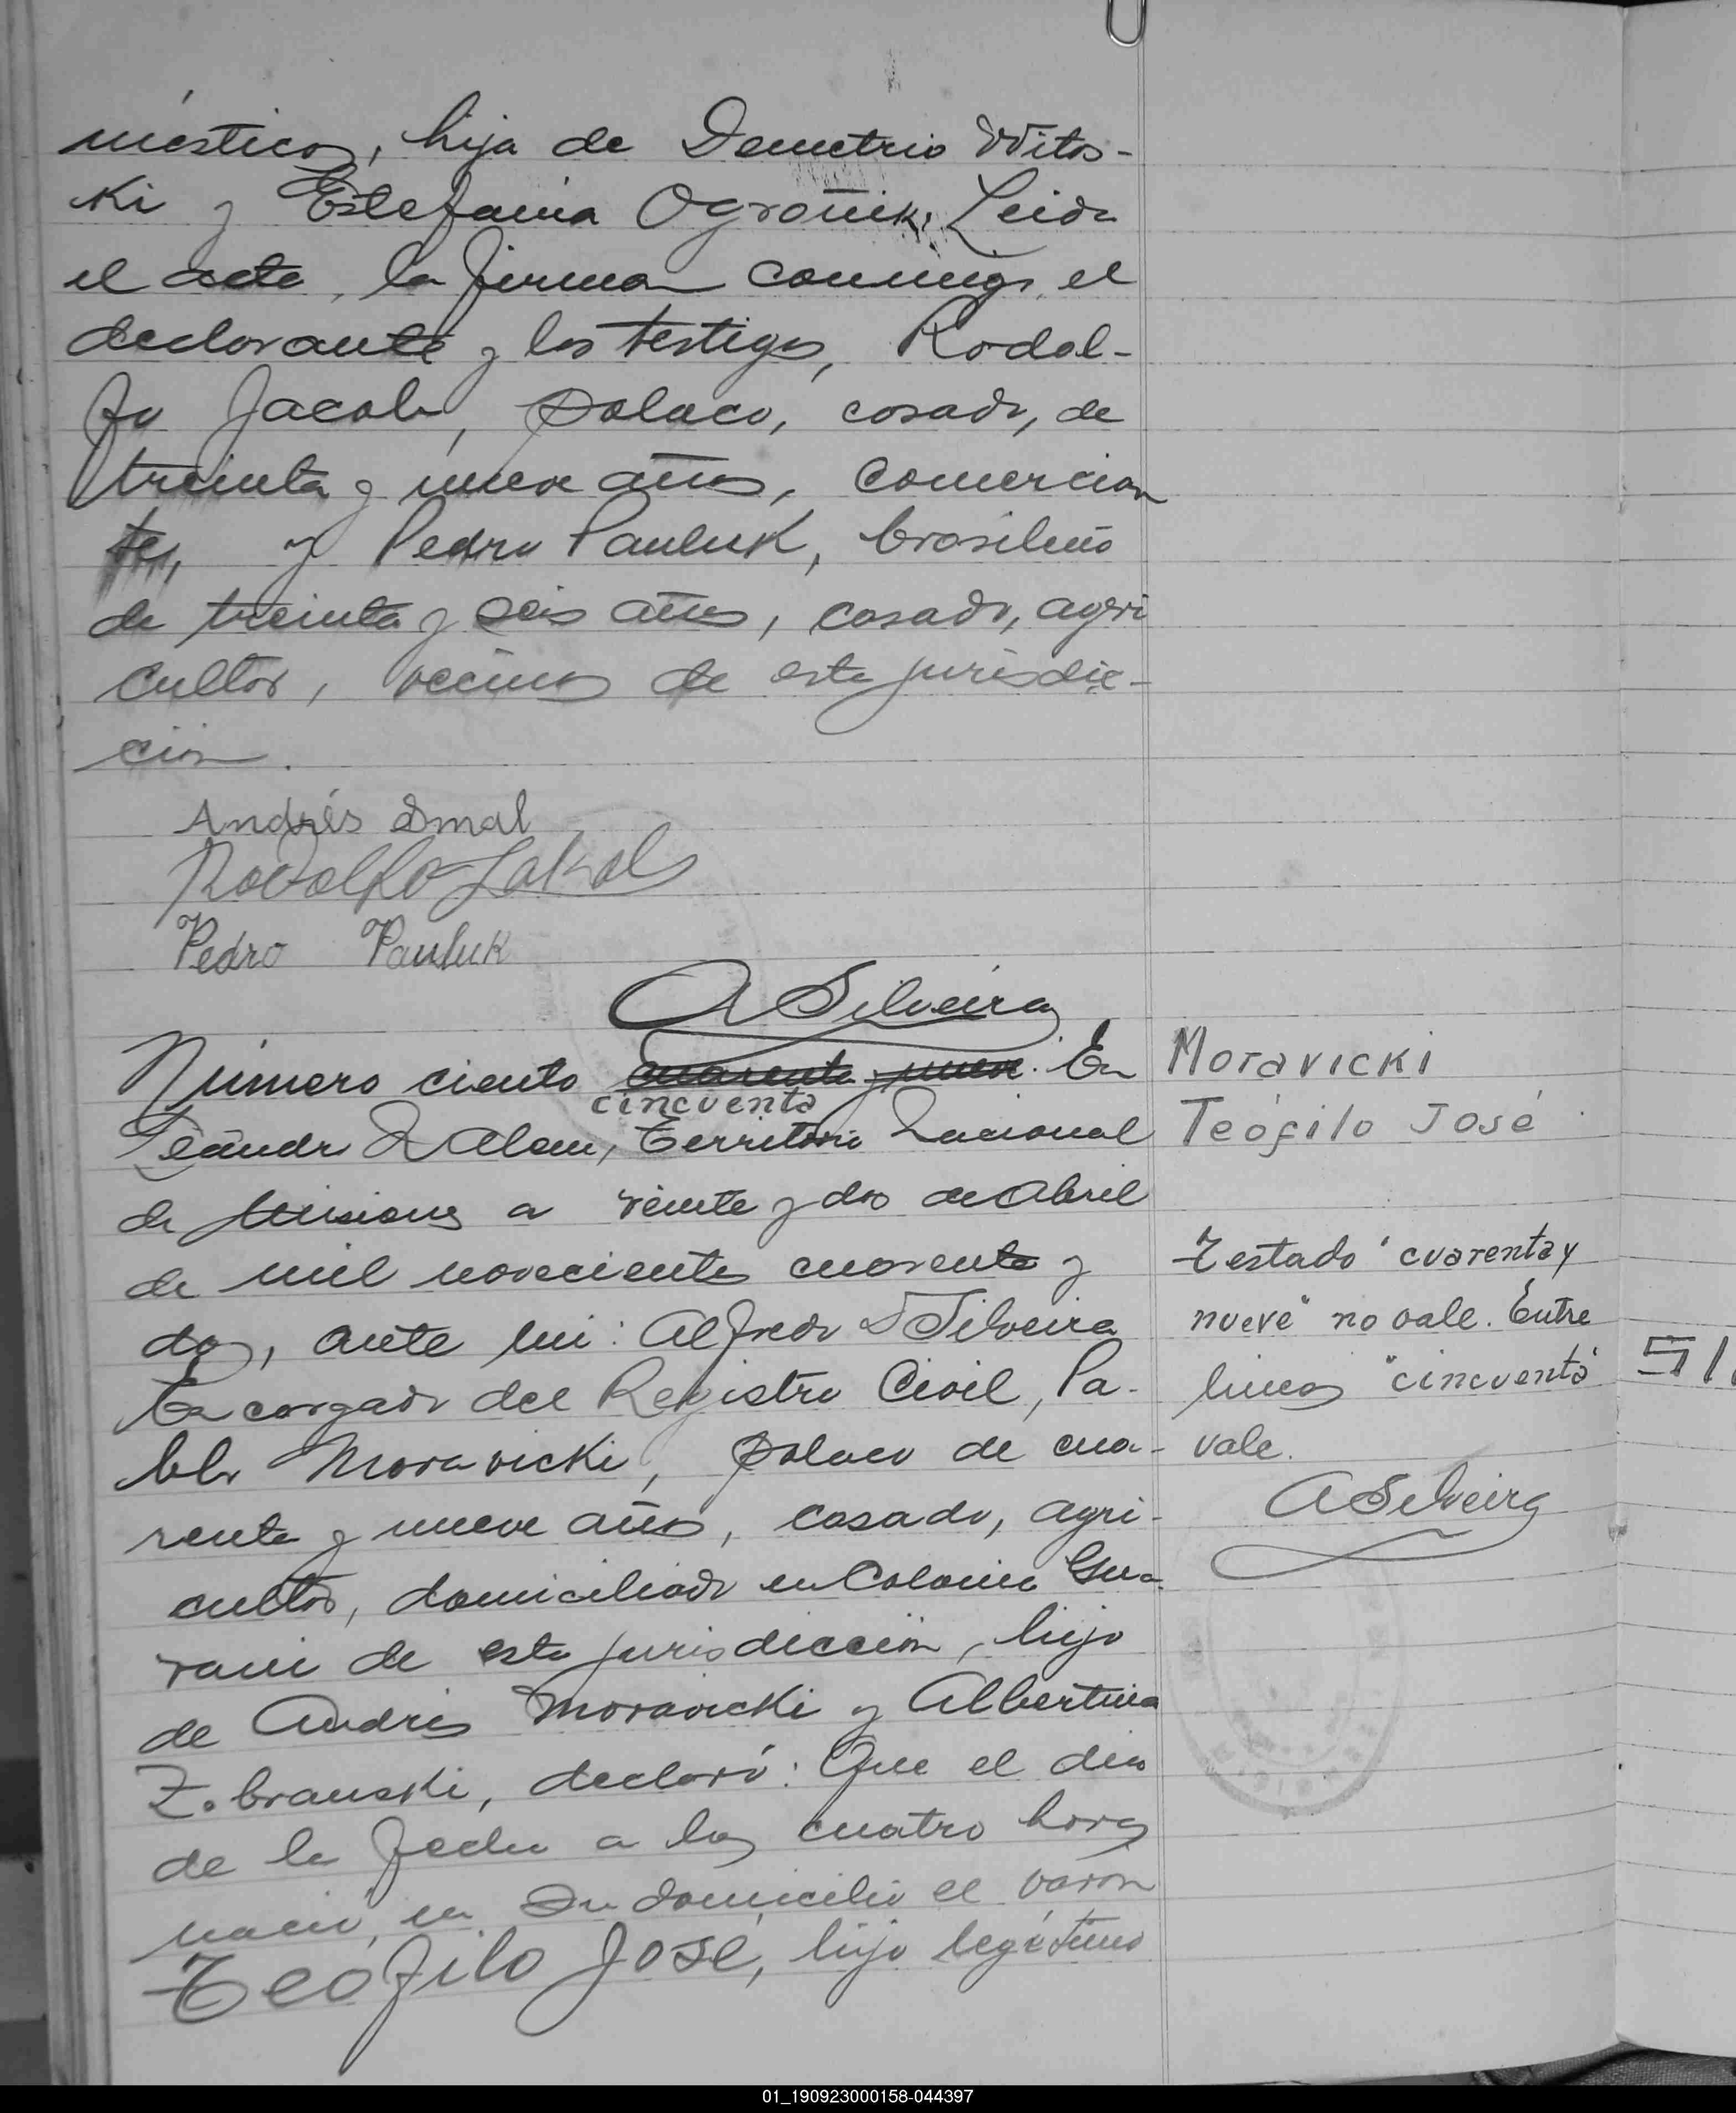 mésticos, hija de Demetrio Witos-
ki y Estefanía Ogronik, Leida
el acta, la firman conmigo, el
declarante y los testigos, Rodol-
fo Jacob, polaco, casado, de
treinta y nueve años, comercian
te, y Pedro Pauluk, brasileño
de treinta y seis años, casado, agri
cultor, vecinos de esta jurisdic-
ción.
Andrés Smal
Rodolfo Jakob
Pedro Pauluk
A Silveira
Número ciento cuarenta y nueve. En
cincuenta
Leandro N Alem, Territorio Nacional
de Misiones a veinte y dos de Abril
de mil novecientos cuarenta y
dos, ante mi: Alfredo Silveira
Encargado del Registro Civil, Pa-
blo Moravicki, polaco de cua-
renta y nueve años, casado, agri-
cultor, domiciliado en Colonia Gua-
raní de esta jurisdicción, hijo
de Andrés Moravicki y Albertina
Zobranski, declaró: Que el día
de la fecha a las cuatro horas
nació, en su domicilio el varón
Teófilo José, hijo legítimo
Moravicki
Teófilo José
Testado "cuarenta y
nueve" no vale. Entre
lineas "cincuenta"
vale.
A Silveira
51
01_190923000158-044397